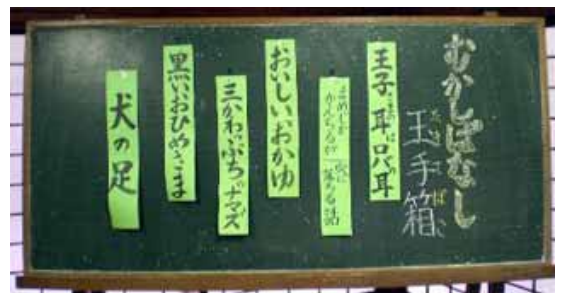 むかしばなし
玉手箱
王子の耳はロバの耳
まめじかかんちるが穴に落ちる話
おいしいおかゆ
三かわぶちのナマズ
黒いおひめさま
犬の足